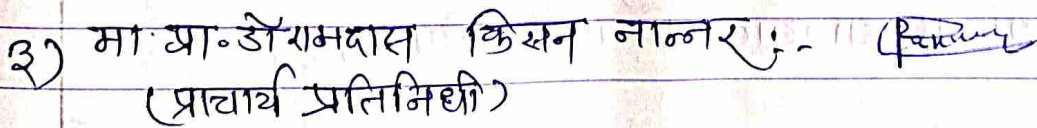 ३) मा. प्रा. डॉ रामदास किसन नान्नर :-
(प्राचार्य प्रतिनिधी)